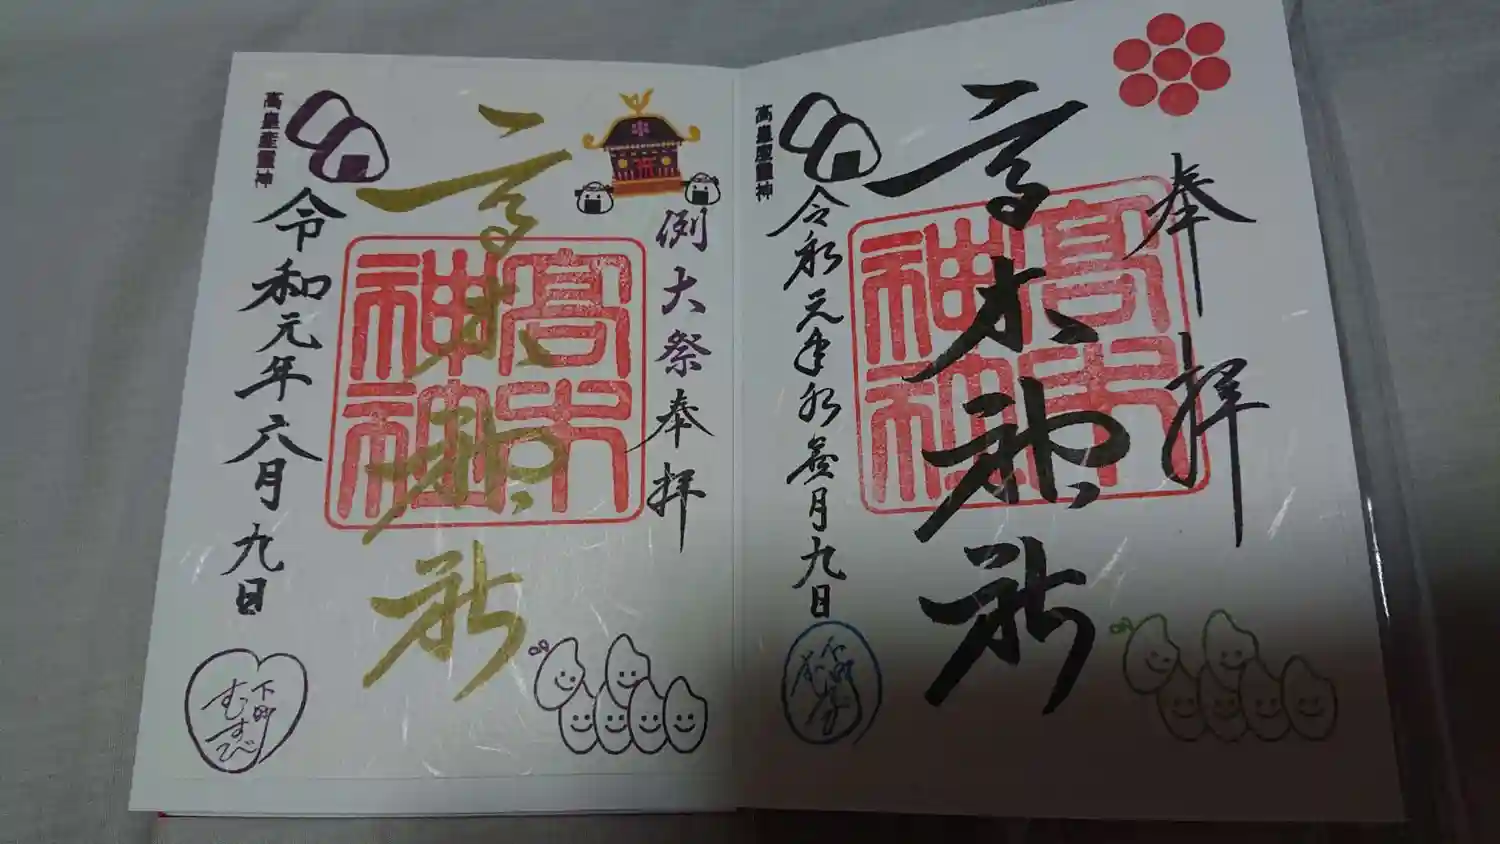 奉拝
高木神社
高木神社
高皇産霊神
例大祭奉拝
高木神社
高木神社
高皇産霊神
令和元年六月九日
むすび